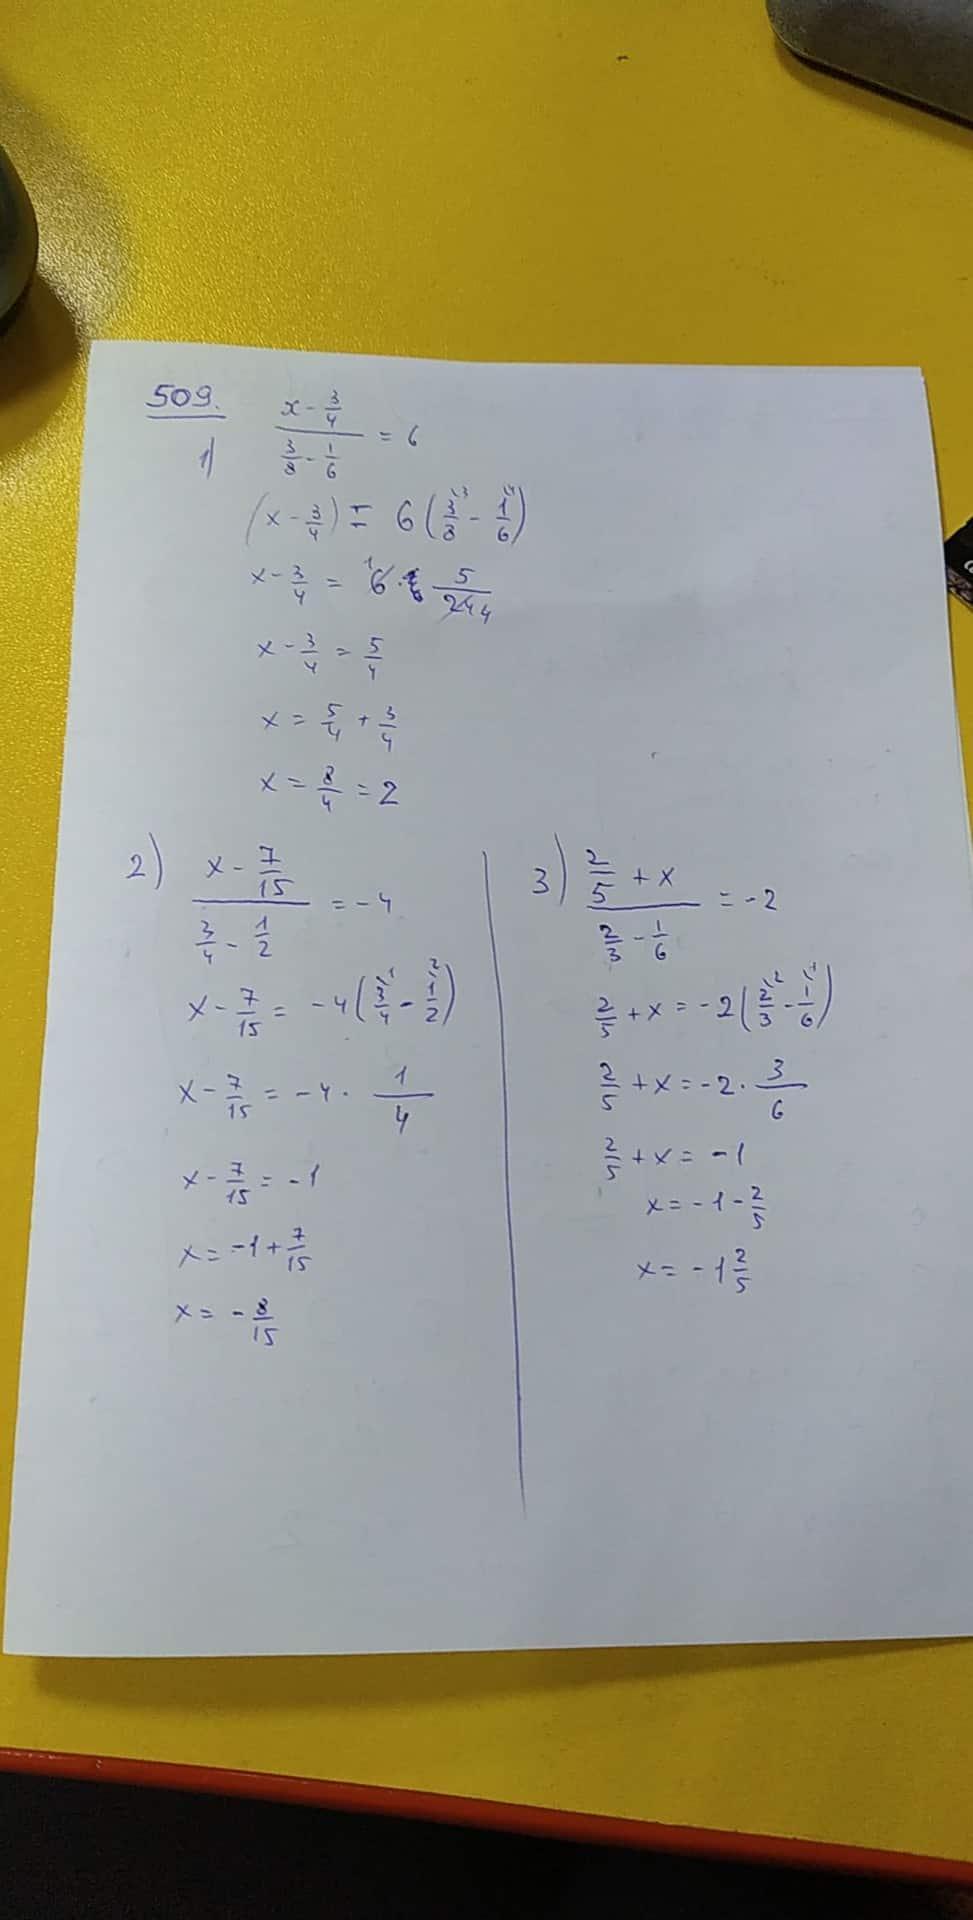 509.
1) (x - 3/4)/(3/8 - 1/6) = 6
(x - 3/4) = 6(3/8 - 1/6)
x - 3/4 = 6 · 5/24 4
x - 3/4 = 5/4
x = 5/4 + 3/4
x = 8/4 = 2
2) (x - 7/15)/(3/4 - 1/2) = -4
x - 7/15 = -4(3/4 - 1/2)
x - 7/15 = -4 · 1/4
x - 7/15 = -1
x = -1 + 7/15
x = - 8/15
3) (2/5 + x)/(2/3 - 1/6) = -2
2/5 + x = -2(2/3 - 1/6)
2/5 + x = -2 · 3/6
2/5 + x = -1
x = -1 - 2/5
x = -1 2/5